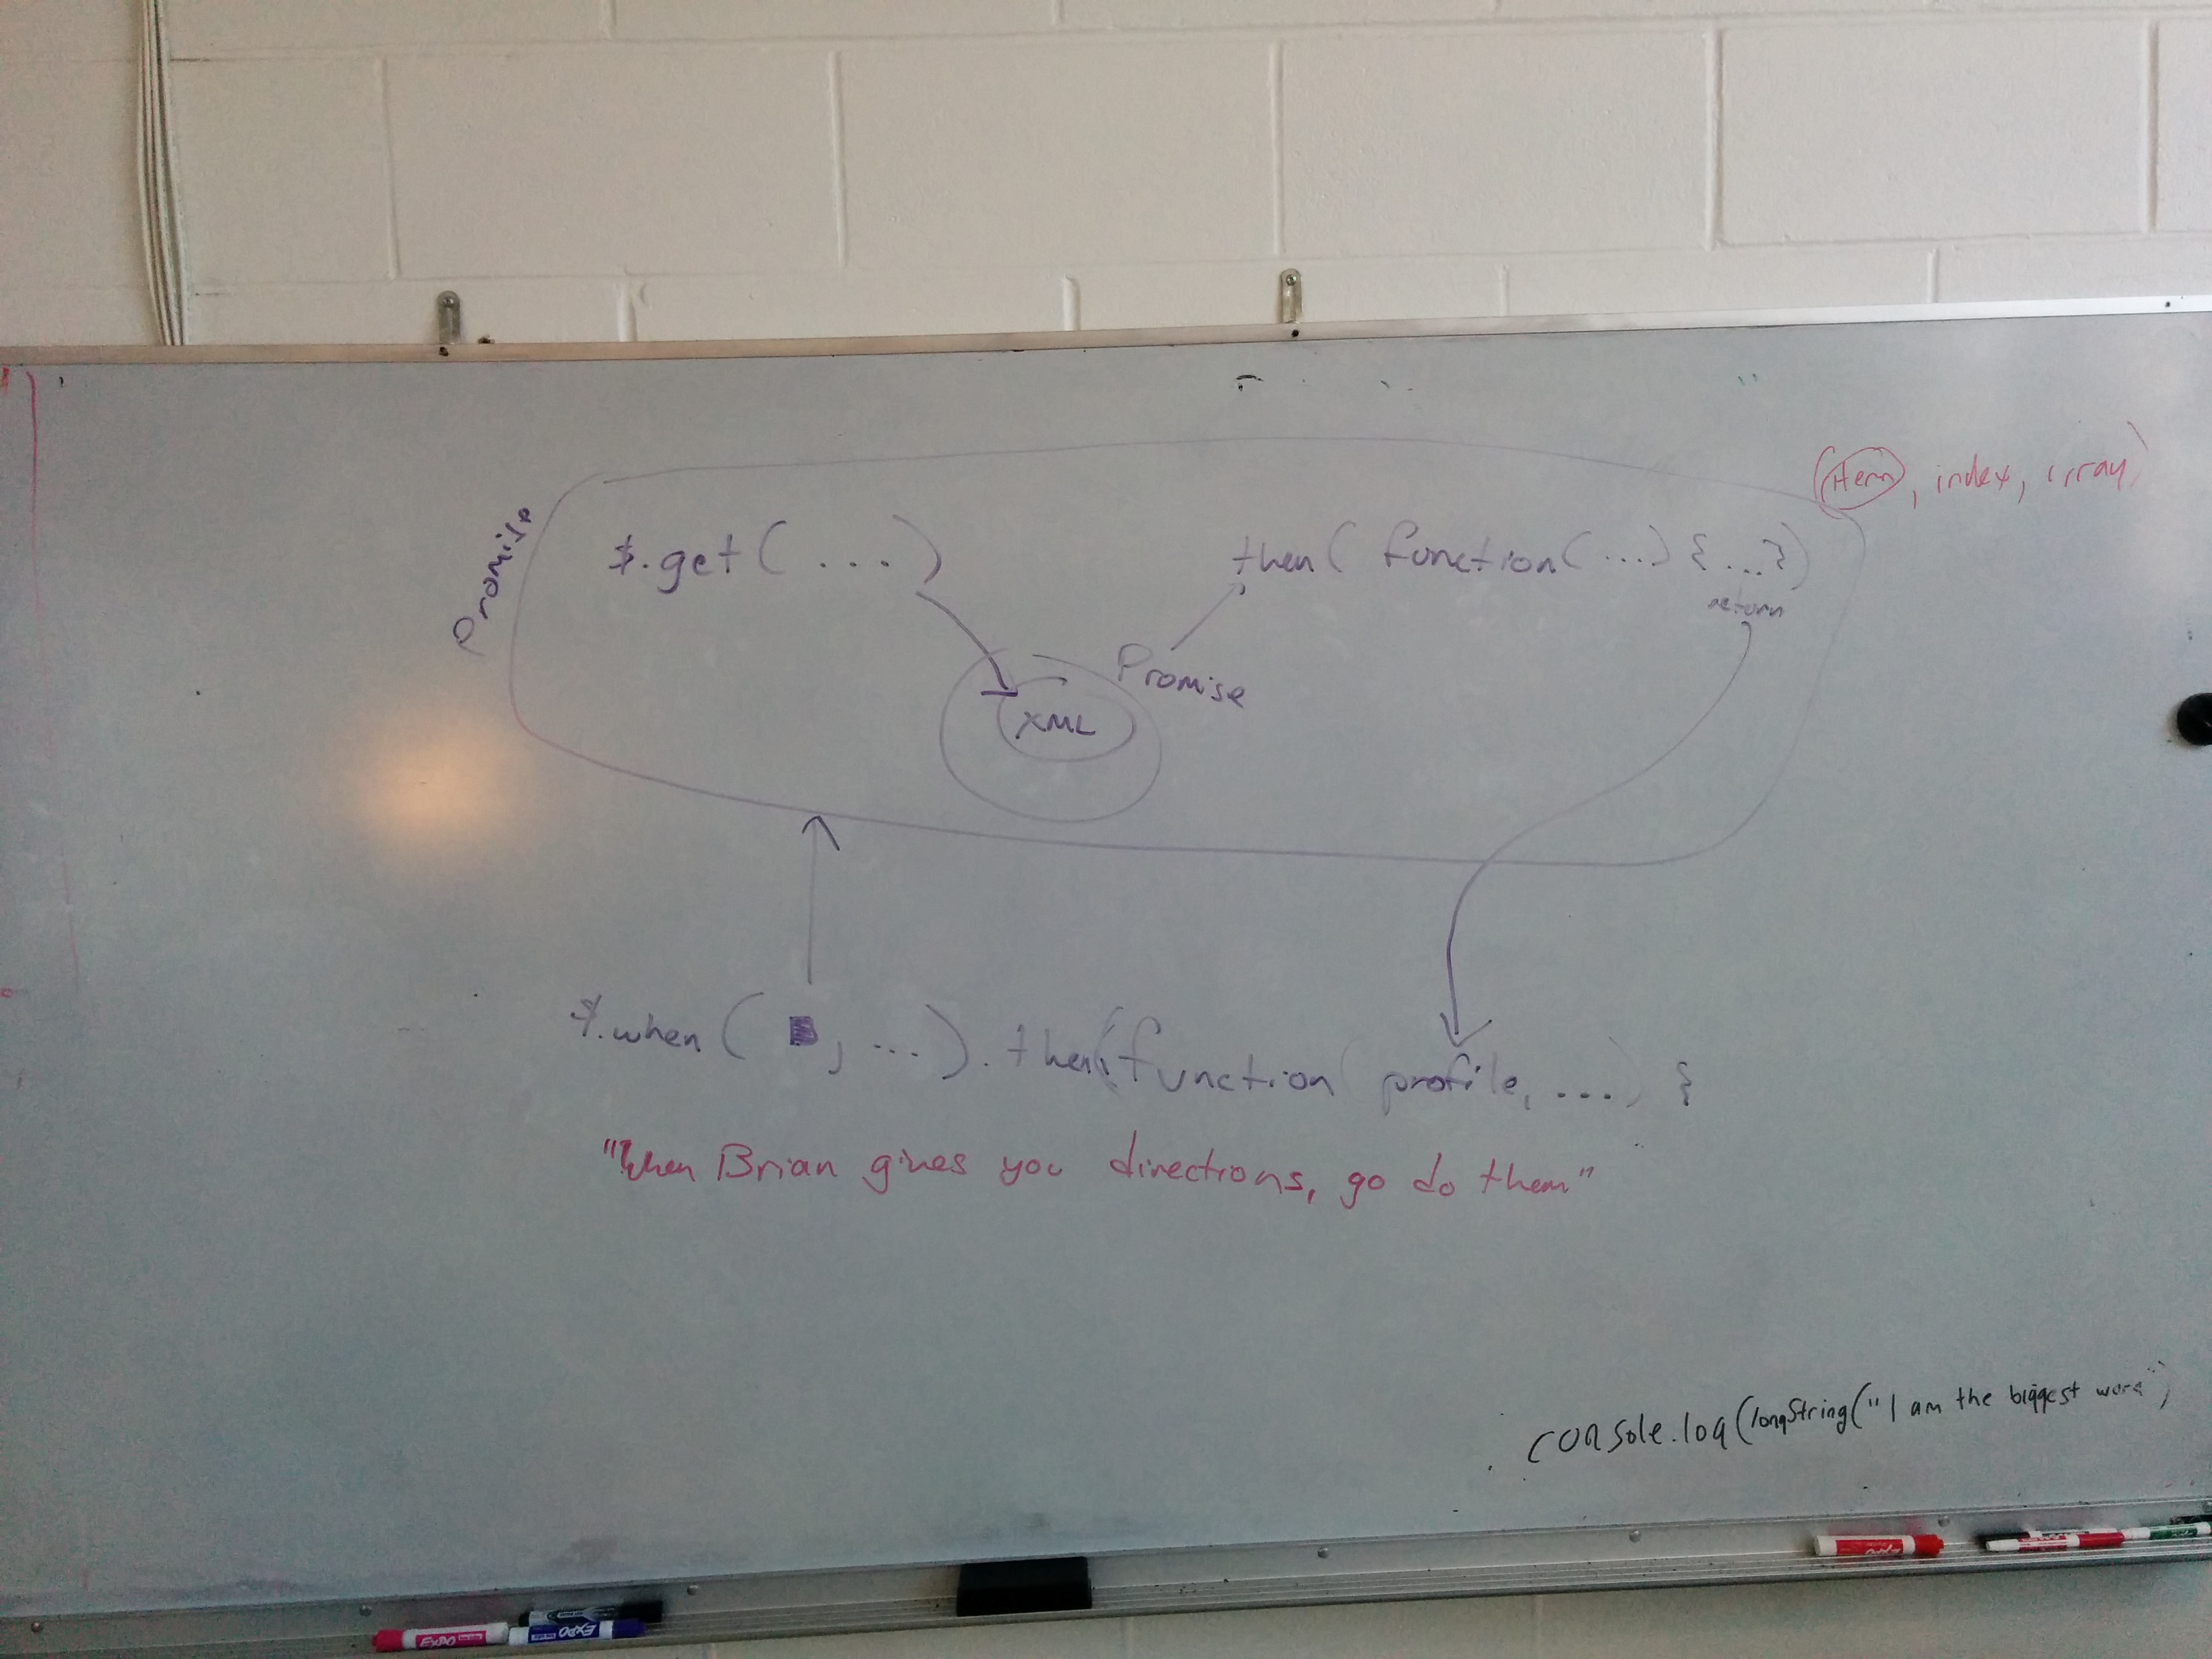 (item, index, array)
Promise
$.get(...)
then( function(...) {...})
return
Promise
XML
$.when( , ...).then(function( profile, ...) {
"When Brian gives you directions, go do them"
console.log(longString("I am the biggest word")
EXPO
EXPO